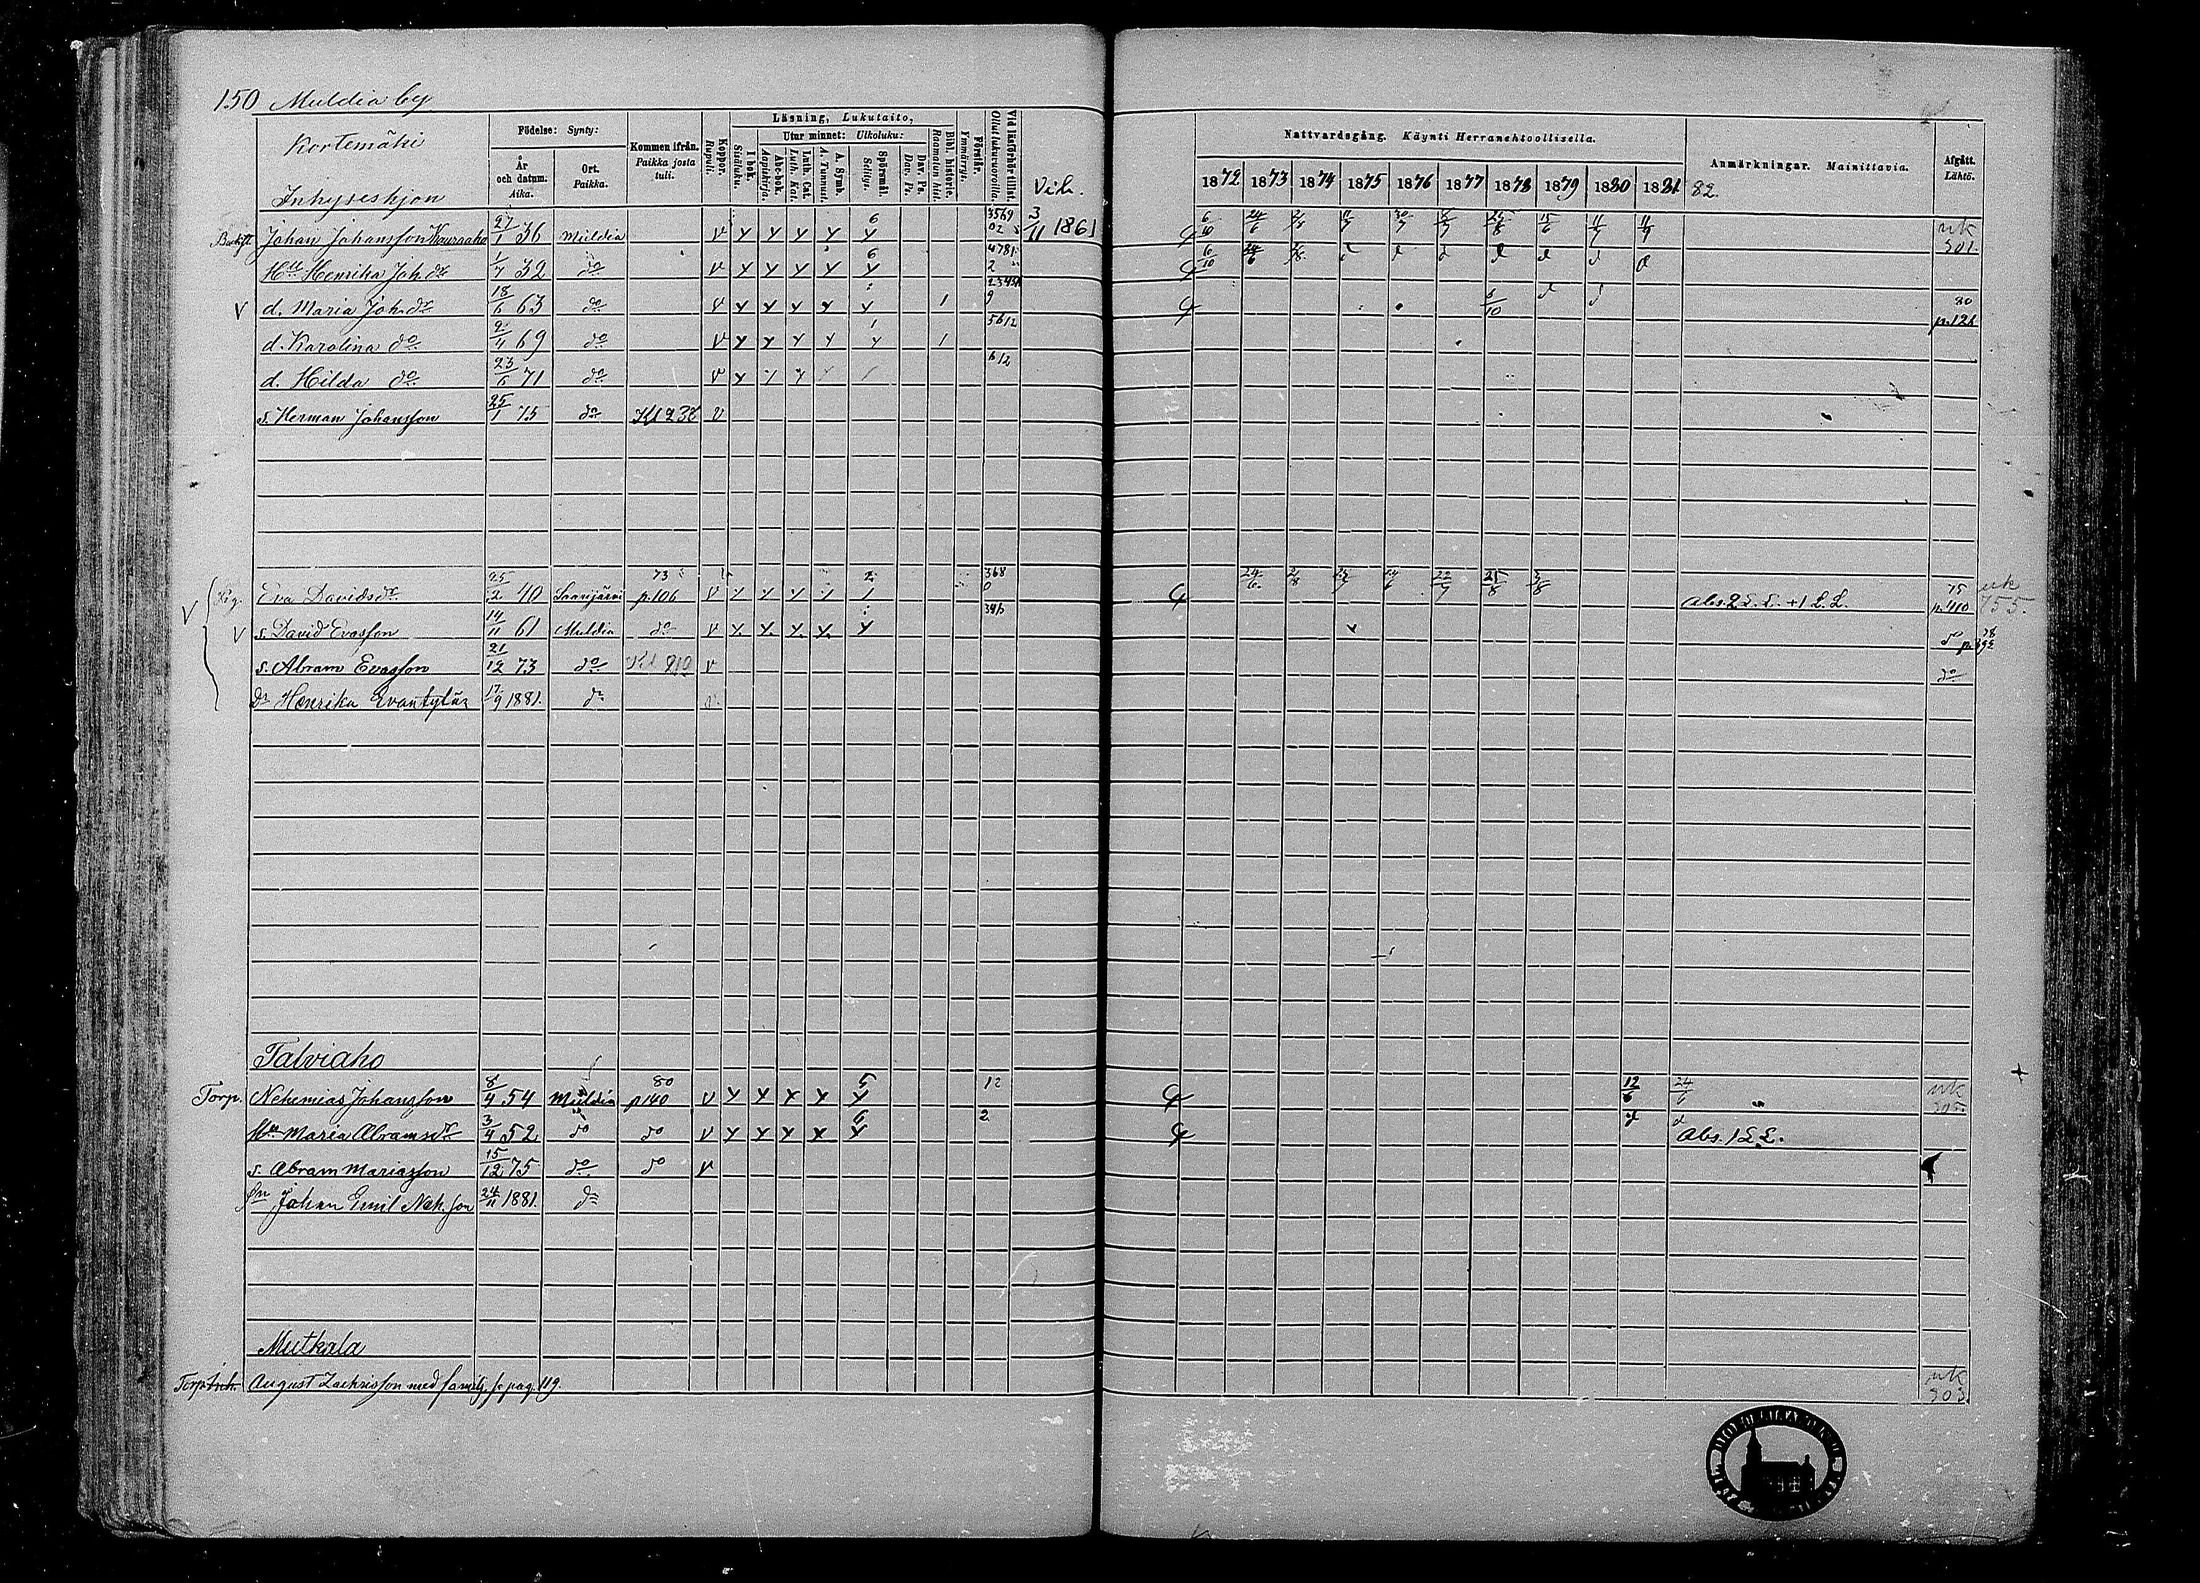 150 Muldia by
Kortemäki
Inhyseshjon
Födelse: Synty:
År och datum. Aika.
Ort. Paikka.
Kommen ifrån. Paikka josta tuli.
Koppor. Rupuli.
Läsning, Lukutaito,
I bok. Sisältuku.
Utur minnet: Ulkoluku:
Abc-bok. Aapiskirja.
Luth. Cat. Luth. Kat.
A. Symb. A. Tunnust.
Spörsmål. Selitys.
Dav. Ps. Dav. Ps.
Bibl. historie. Raamatun hist.
Förstår. Ymmärrys.
Vid läsförhör tillst. Ollut lukuvuorolla.
Vih.
Nattvardsgång. Käynti Herranehtoollisella.
1872 1873 1874 1875 1876 1877 1878 1879 1880 1881 82.
Anmärkningar. Mainittavia.
Afgått. Lähtö.
Johan Johansson 27/1 36 Muldia V 6 3569 3/11 1861 6/10 24/6 uk 301.
Hu Henrika Joh.dr 1/7 32 do V 6 4781 2 6/10 24/6
V d. Maria Joh.dr 18/6 63 do V 1 9 80 p.121
d. Karolina do 9/4 69 do V 1 5612
d. Hilda do 23/6 71 do V 612
s. Herman Johansson 25/1 75 do Kl 238 V
Eva Davidsdr 25/2 40 Saarijärvi 73 p.106 V 368 0 24/6 Abs. 2 L. L. + 1 L. L. 75 p.410 uk 455.
V s. David Evasson 14/11 61 Muldia do V 346 do
s. Abram Evasson 21/12 73 do V do
Dr Henrika Evantytär 17/9 1881. do
Talviaho
Torp. Nehemias Johansson 8/4 54 Muldia 80 p140 V 5 12 12/6 24/6 uk 305.
Hu Maria Abramsdr 3/4 52 do do V 6 2 Abs. 1 L. L.
s. Abram Mariasson 15/12 75 do do V
Johan Emil Neh.son 24/11 1881. do
Mutkala
Torp. August Zachrisson med familj se pag. 119. uk 303.